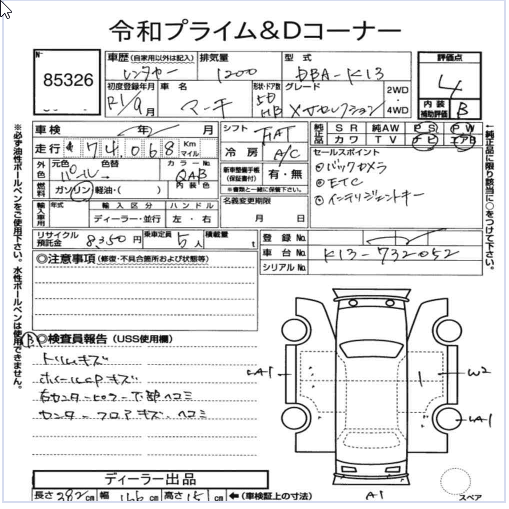 令和プライム&Dコーナー
No
85326
車歴(自家用以外は記入) 排気量 型式
レンタカー 1200 DBA-K13
評価点
4
内装補助評価 B
初度登録年月 車名 形状・ドア数 グレード 2WD・4WD
R1/9月 マーチ 5D HB Xセレクション
車検 年 月
シフト FAT
純正品 SR 純AW PS PW
カワ TV ナビ エアB
走行 74,068 Km マイル
冷房 A/C
セールスポイント
◎バックカメラ
◎ETC
◎インテリジェントキー
外色 元色 色替 カラーNo.
パール QAB
新車整備手帳(保証書付) 有・無
※書類と一緒に保管下さい。
燃料 ガソリン 軽油・( ) 内装色
名義変更期限
月 日
輸入車用 年式 輸入区分 ハンドル
ディーラー・並行 左・右
リサイクル預託金 8350円 乗車定員 5人 積載量 t
登録No.
車台No. K13-732052
シリアルNo.
◎注意事項(修復・不具合箇所および状態等)
◎検査員報告(USS使用欄)
トリムキズ
ホイールCPキズ
右センターピラー下部ヘコミ
センターフロアキズ、ヘコミ
※必ず油性ボールペンをご使用下さい。水性ボールペンは使用できません。
←純正品に限り該当に○をつけて下さい。
LA1
W2
LA1
ディーラー出品
長さ 382cm 幅 166cm 高さ 151cm ←(車検証上の寸法)
A1
スペア